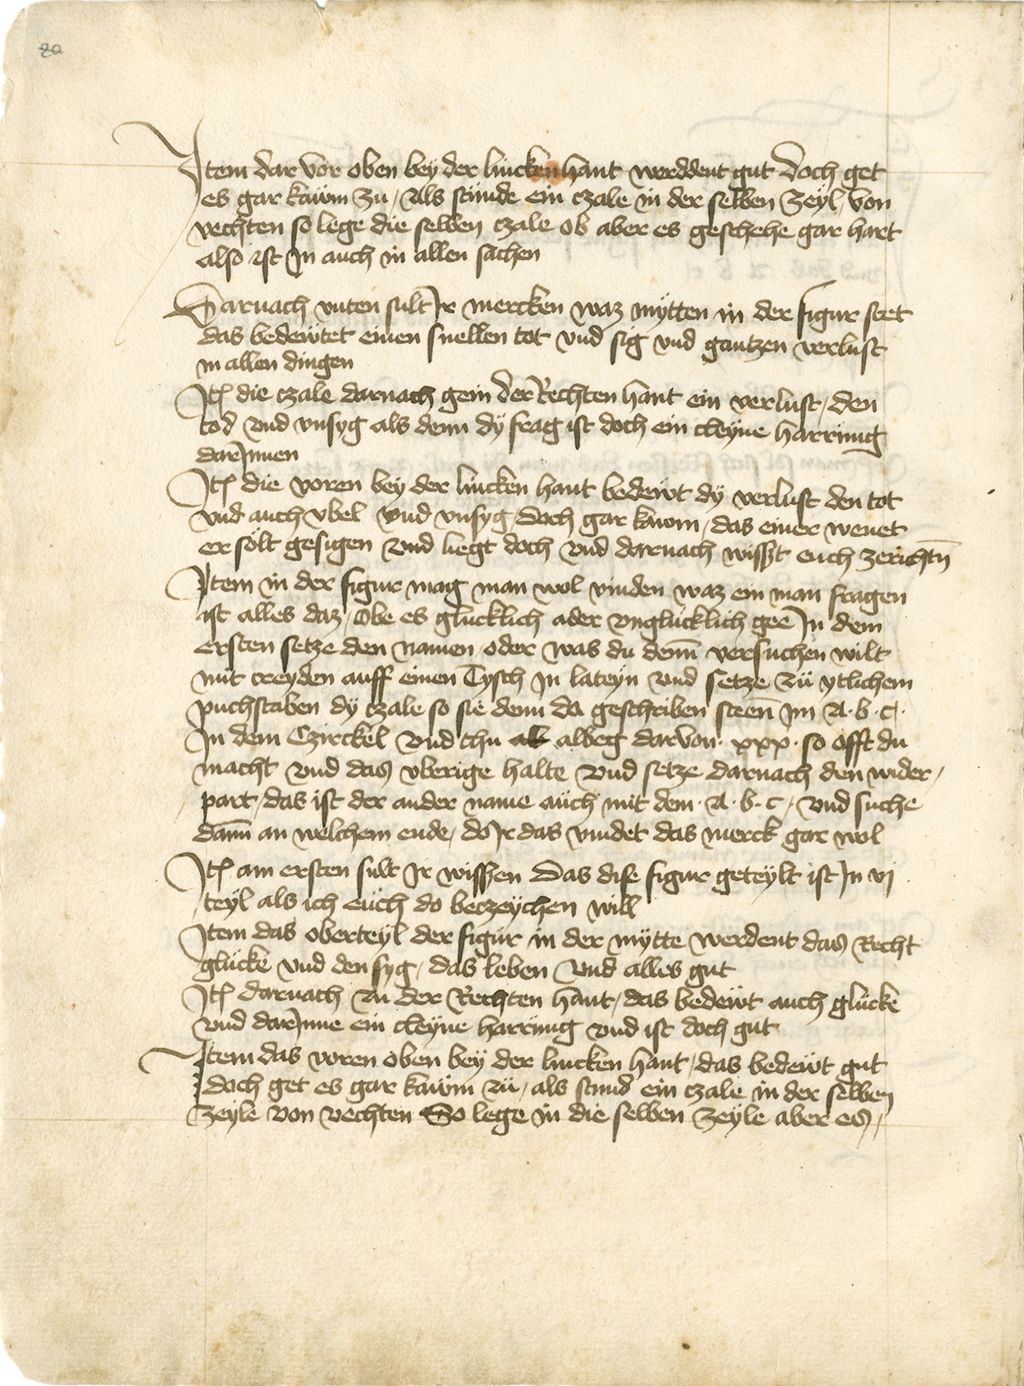 20
Item dar vor oben bey der lincken hant werddent gut doch get
es gar kawm zu / Als stunde ein czale in der selben Zeyl / von
vechten so lege die selben czale ob aber es geschehe gar hart
also ist In auch in allen sachen
Darnach vnten sult Ir mercken waz mytten in der figur stet
das bedewtet einen snellen tot vnd sig vnd gantzen verlust
in allen dingen
Itē die czale darnach gein der Rechten hant ein verlust / den
tod vnd vnsyg als denn dy frag ist doch ein cleyne harrung
dar Innen
Itē die voren bey der lincken hant bedewt dy verlust den tot
vnd auch vbel vnd vnsyg / doch gar kawm / das einer wenet
er sölt gesigen vnd liegt doch vnd darnach wisst euch zerichtn̄
Item in der figur mag man wol vinden waz ein man fragen
ist alles daz / Obe es glücklich ader vnglücklich gee In dem
ersten setze den namen oder was du denn̄ versuchen wilt
mit creyden auff einen Tysch In lateyn vnd setze zü ytlichem
puchstaben dy czale so sie denn da geschriben steen̄ Im A · b · c ·
In dem Czirckel vnd thu albeg darvon · xxx · so offt du
macht vnd das vberige halte vnd setze darnach den wider /
part / das ist der ander name auch mit dem · A · b · c / vnd suche
dann̄ an welchem ende / do Ir das vindet das merck gar wol
Itē am ersten sult Ir wissen Das dise figur geteylt ist In vj
teyl als ich euch do beczeychen will
Item das oberteyl der figur in der mytte werdent das Recht
glücke vnd den syg / das leben vnd alles gut
Itē darnach zu der Rechten hant / das bedewt auch glücke
vnd dar Inne ein cleyne harrung vnd ist doch gut
Item das voren oben bey der lincken hant / das bedewt gut
doch get es gar kawm zü / als stund ein czale in der selben
zeyle von vechten So lege in die selben zeyle aber es /